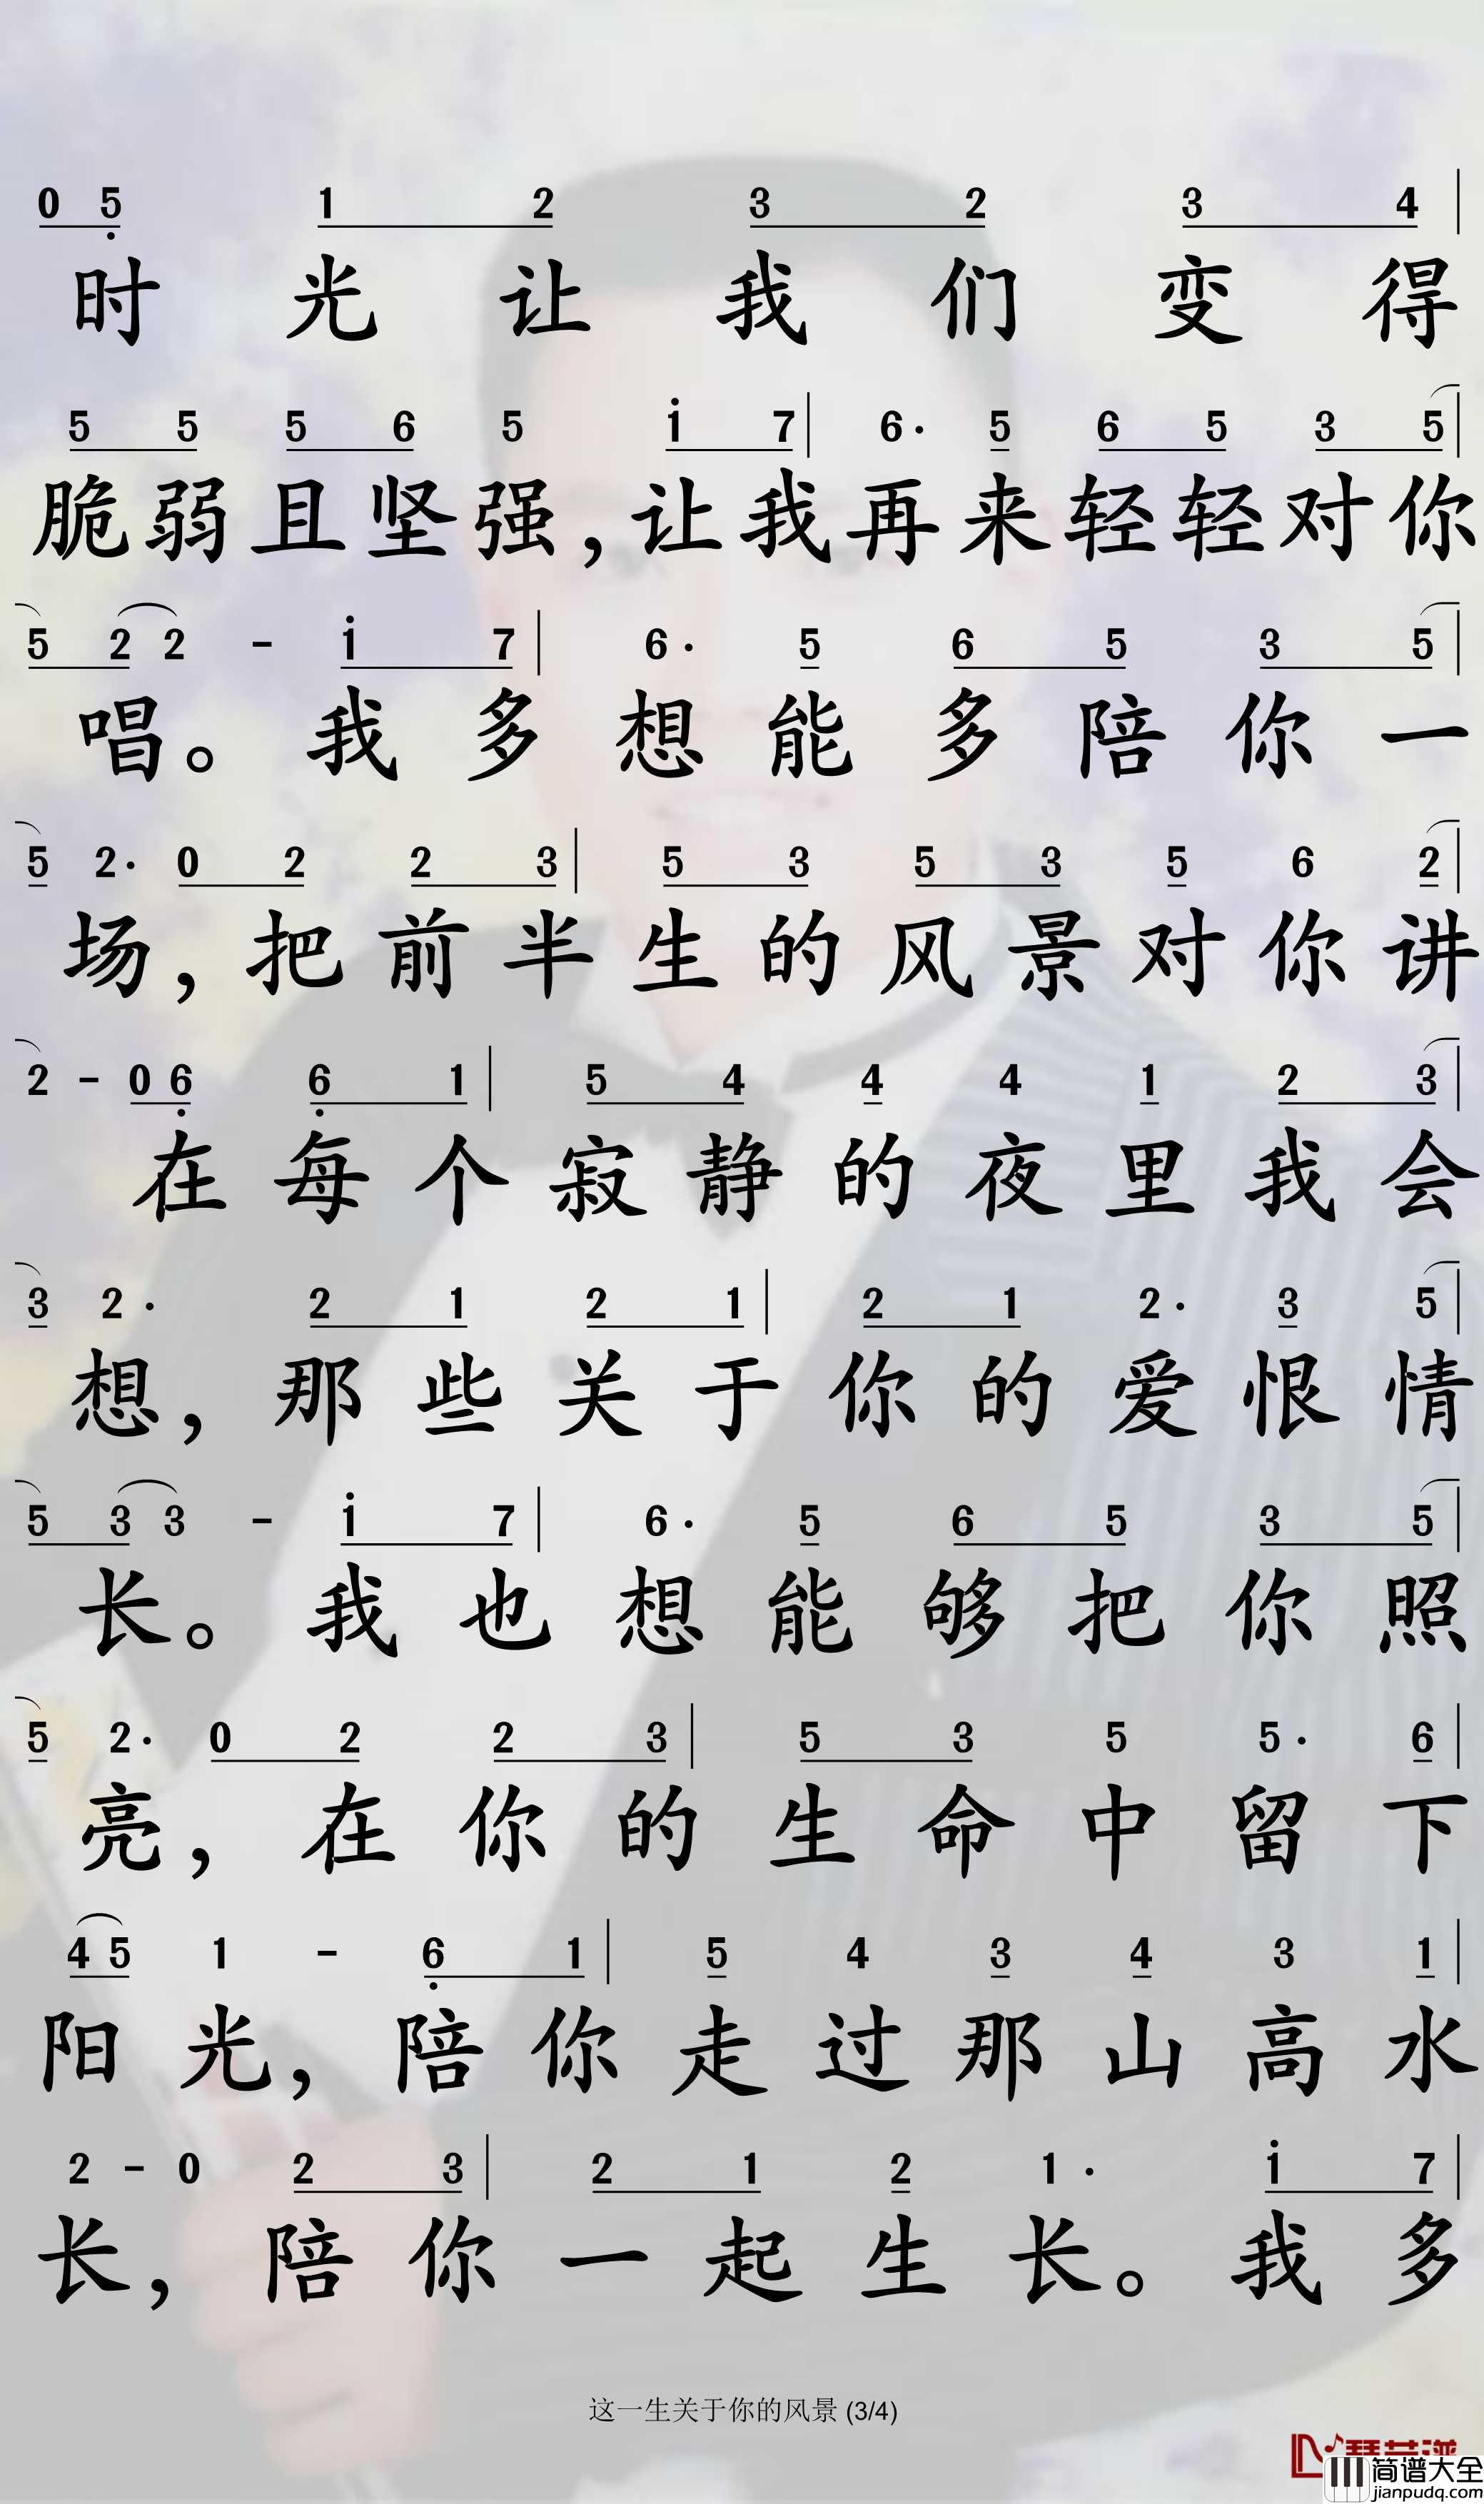 0 5 1 2 3 2 3 4
时光让我们变得
5 5 5 6 5 i 7 6· 5 6 5 3 5
脆弱且坚强,让我再来轻轻对你
5 2 2 - i 7 6· 5 6 5 3 5
唱。我多想能多陪你一
5 2· 0 2 2 3 5 3 5 3 5 6 2
场,把前半生的风景对你讲
2 - 0 6 6 1 5 4 4 4 1 2 3
在每个寂静的夜里我会
3 2· 2 1 2 1 2 1 2· 3 5
想,那些关于你的爱恨情
5 3 3 - i 7 6· 5 6 5 3 5
长。我也想能够把你照
5 2· 0 2 2 3 5 3 5 5· 6
亮,在你的生命中留下
4 5 1 - 6 1 5 4 3 4 3 1
阳光,陪你走过那山高水
2 - 0 2 3 2 1 2 1· i 7
长,陪你一起生长。我多
这一生关于你的风景 (3/4)
简谱大全
jianpudq.com